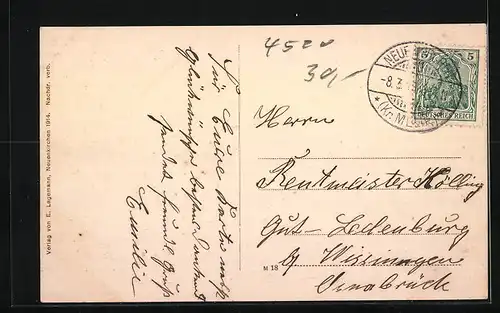 Verlag von E. Lagemann, Neuenkirchen 1914. Nachdr. verb.
Für Eure Karte nebst
Glückwünsche besten Dank und
sendet freundl. Gruß
Emilie
4520
30,-
NEUE
-8.3.
*(Kr. M
5
DEUTSCHES REICH
Herrn
Rentmeister Hölling
Gut-Ledenburg
b/ Wissingen
Osnabrück
M 18